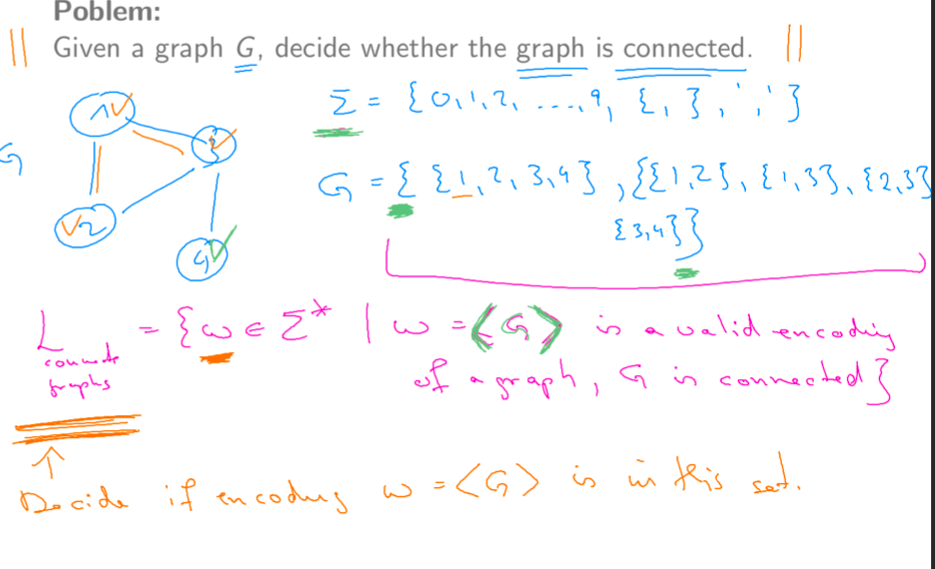 Problem:
Given a graph G, decide whether the graph is connected.
Σ = {0,1,2, ...., 9, {, }, ','}
G
1
3
2
4
G = { {1,2,3,4}, {{1,2}, {1,3}, {2,3}
{3,4}}
L = {w ∈ Σ* | w = <G> is a valid encoding
graphs
of a graph, G is connected}
Decide if encoding w = <G> is in this set.